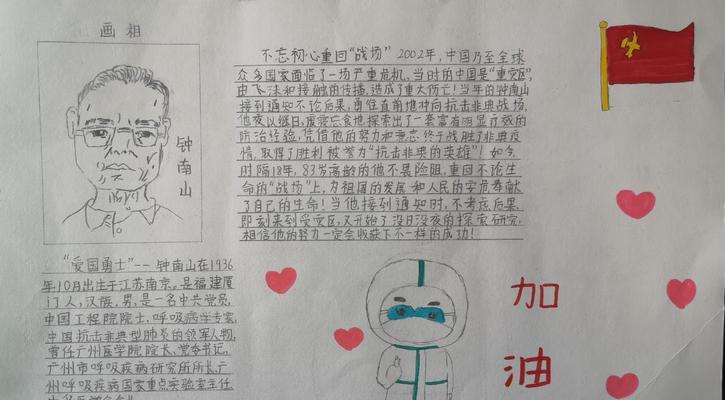 画相
钟南山
不忘初心重回“战场” 2002年,中国乃至全球
众多国家面临了一场严重危机,当时的中国是“重灾区”,
由飞沫和接触的传播,造成了重大伤亡!当年的钟南山
接到通知不论后果,勇往直前地冲向抗击非典战场,
他夜以继日,废寝忘食地探索出了一套富有明显疗效的
防治经验,凭借他的努力和意志终于战胜了非典疫
情,取得了胜利被誉为“抗击非典的英雄”!如今
时隔18年,83岁高龄的他不畏险阻,重回不论生
命的“战场”上,为祖国的发展和人民的安危奉献
了自己的生命!当他接到通知时,不考虑后果,
即刻来到受灾区,又开始了没日没夜的探索研究,
相信他的努力一定会收获下不一样的成功!
“爱国勇士”--钟南山在1936
年10月出生于江苏南京。是福建厦
门人,汉族,男,是一名中共党员,
中国工程院院士,呼吸病学专家,
中国抗击非典型肺炎的领军人物,
曾任广州医学院院长、党委书记,
广州市呼吸疾病研究所所长,广
州呼吸疾病国家重点实验室主任
加
油